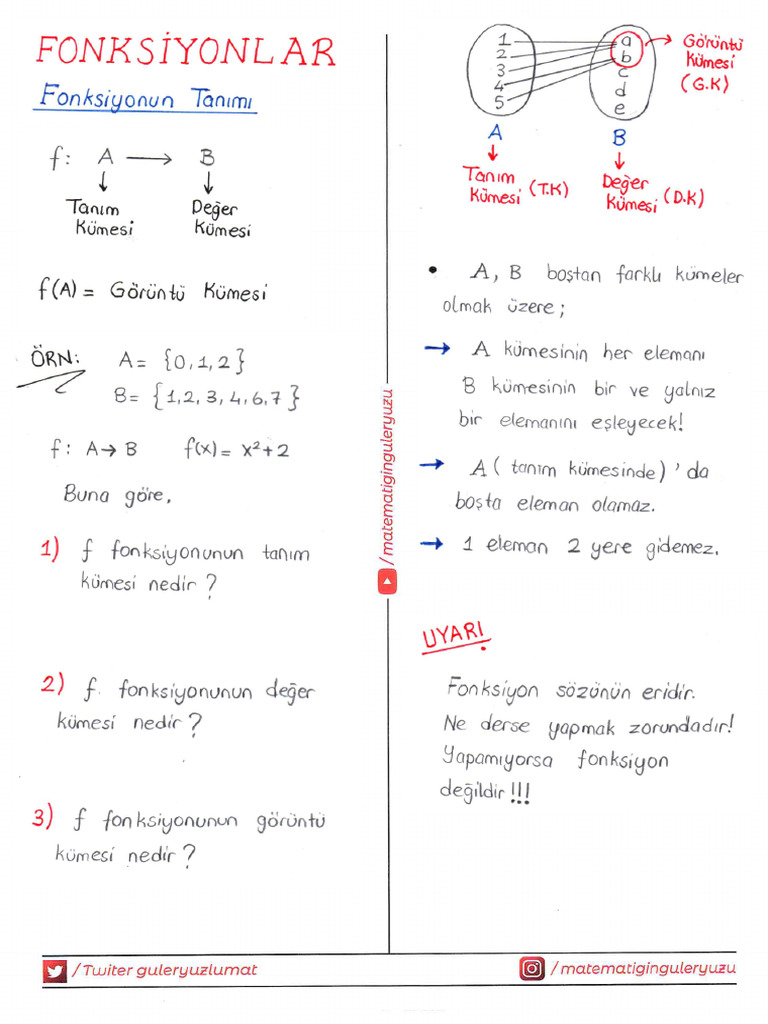 FONKSİYONLAR
Fonksiyonun Tanımı
f: A → B
↓ ↓
Tanım Değer
Kümesi Kümesi
f(A) = Görüntü Kümesi
ÖRN: A = {0, 1, 2}
B = {1, 2, 3, 4, 6, 7}
f: A → B f(x) = x² + 2
Buna göre,
1) f fonksiyonunun tanım
kümesi nedir?
2) f. fonksiyonunun değer
kümesi nedir?
3) f fonksiyonunun görüntü
kümesi nedir?
/matematiginguleryuzu
1 a → Görüntü
2 b Kümesi
3 c (G.K)
4 d
5 e
A B
↓ ↓
Tanım Değer
Kümesi (T.K) Kümesi (D.K)
• A, B boştan farklı kümeler
olmak üzere;
→ A kümesinin her elemanı
B kümesinin bir ve yalnız
bir elemanını eşleyecek!
→ A (tanım kümesinde)'da
boşta eleman olamaz.
→ 1 eleman 2 yere gidemez.
UYARI
Fonksiyon sözünün eridir.
Ne derse yapmak zorundadır!
Yapamıyorsa fonksiyon
değildir!!!
/Twiter guleryuzlumat
/matematiginguleryuzu